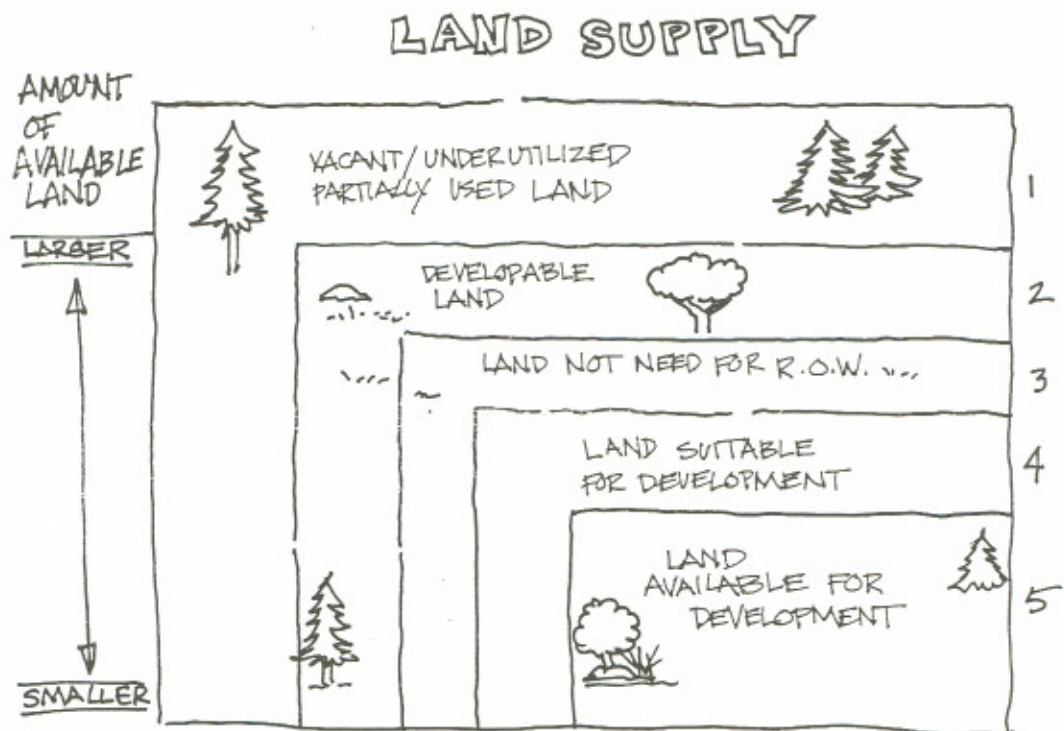 LAND SUPPLY
AMOUNT
OF
AVAILABLE
LAND
LARGER
SMALLER
VACANT/UNDERUTILIZED
PARTIALLY USED LAND
1
DEVELOPABLE
LAND
2
LAND NOT NEED FOR R.O.W.
3
LAND SUITABLE
FOR DEVELOPMENT
4
LAND
AVAILABLE FOR
DEVELOPMENT
5